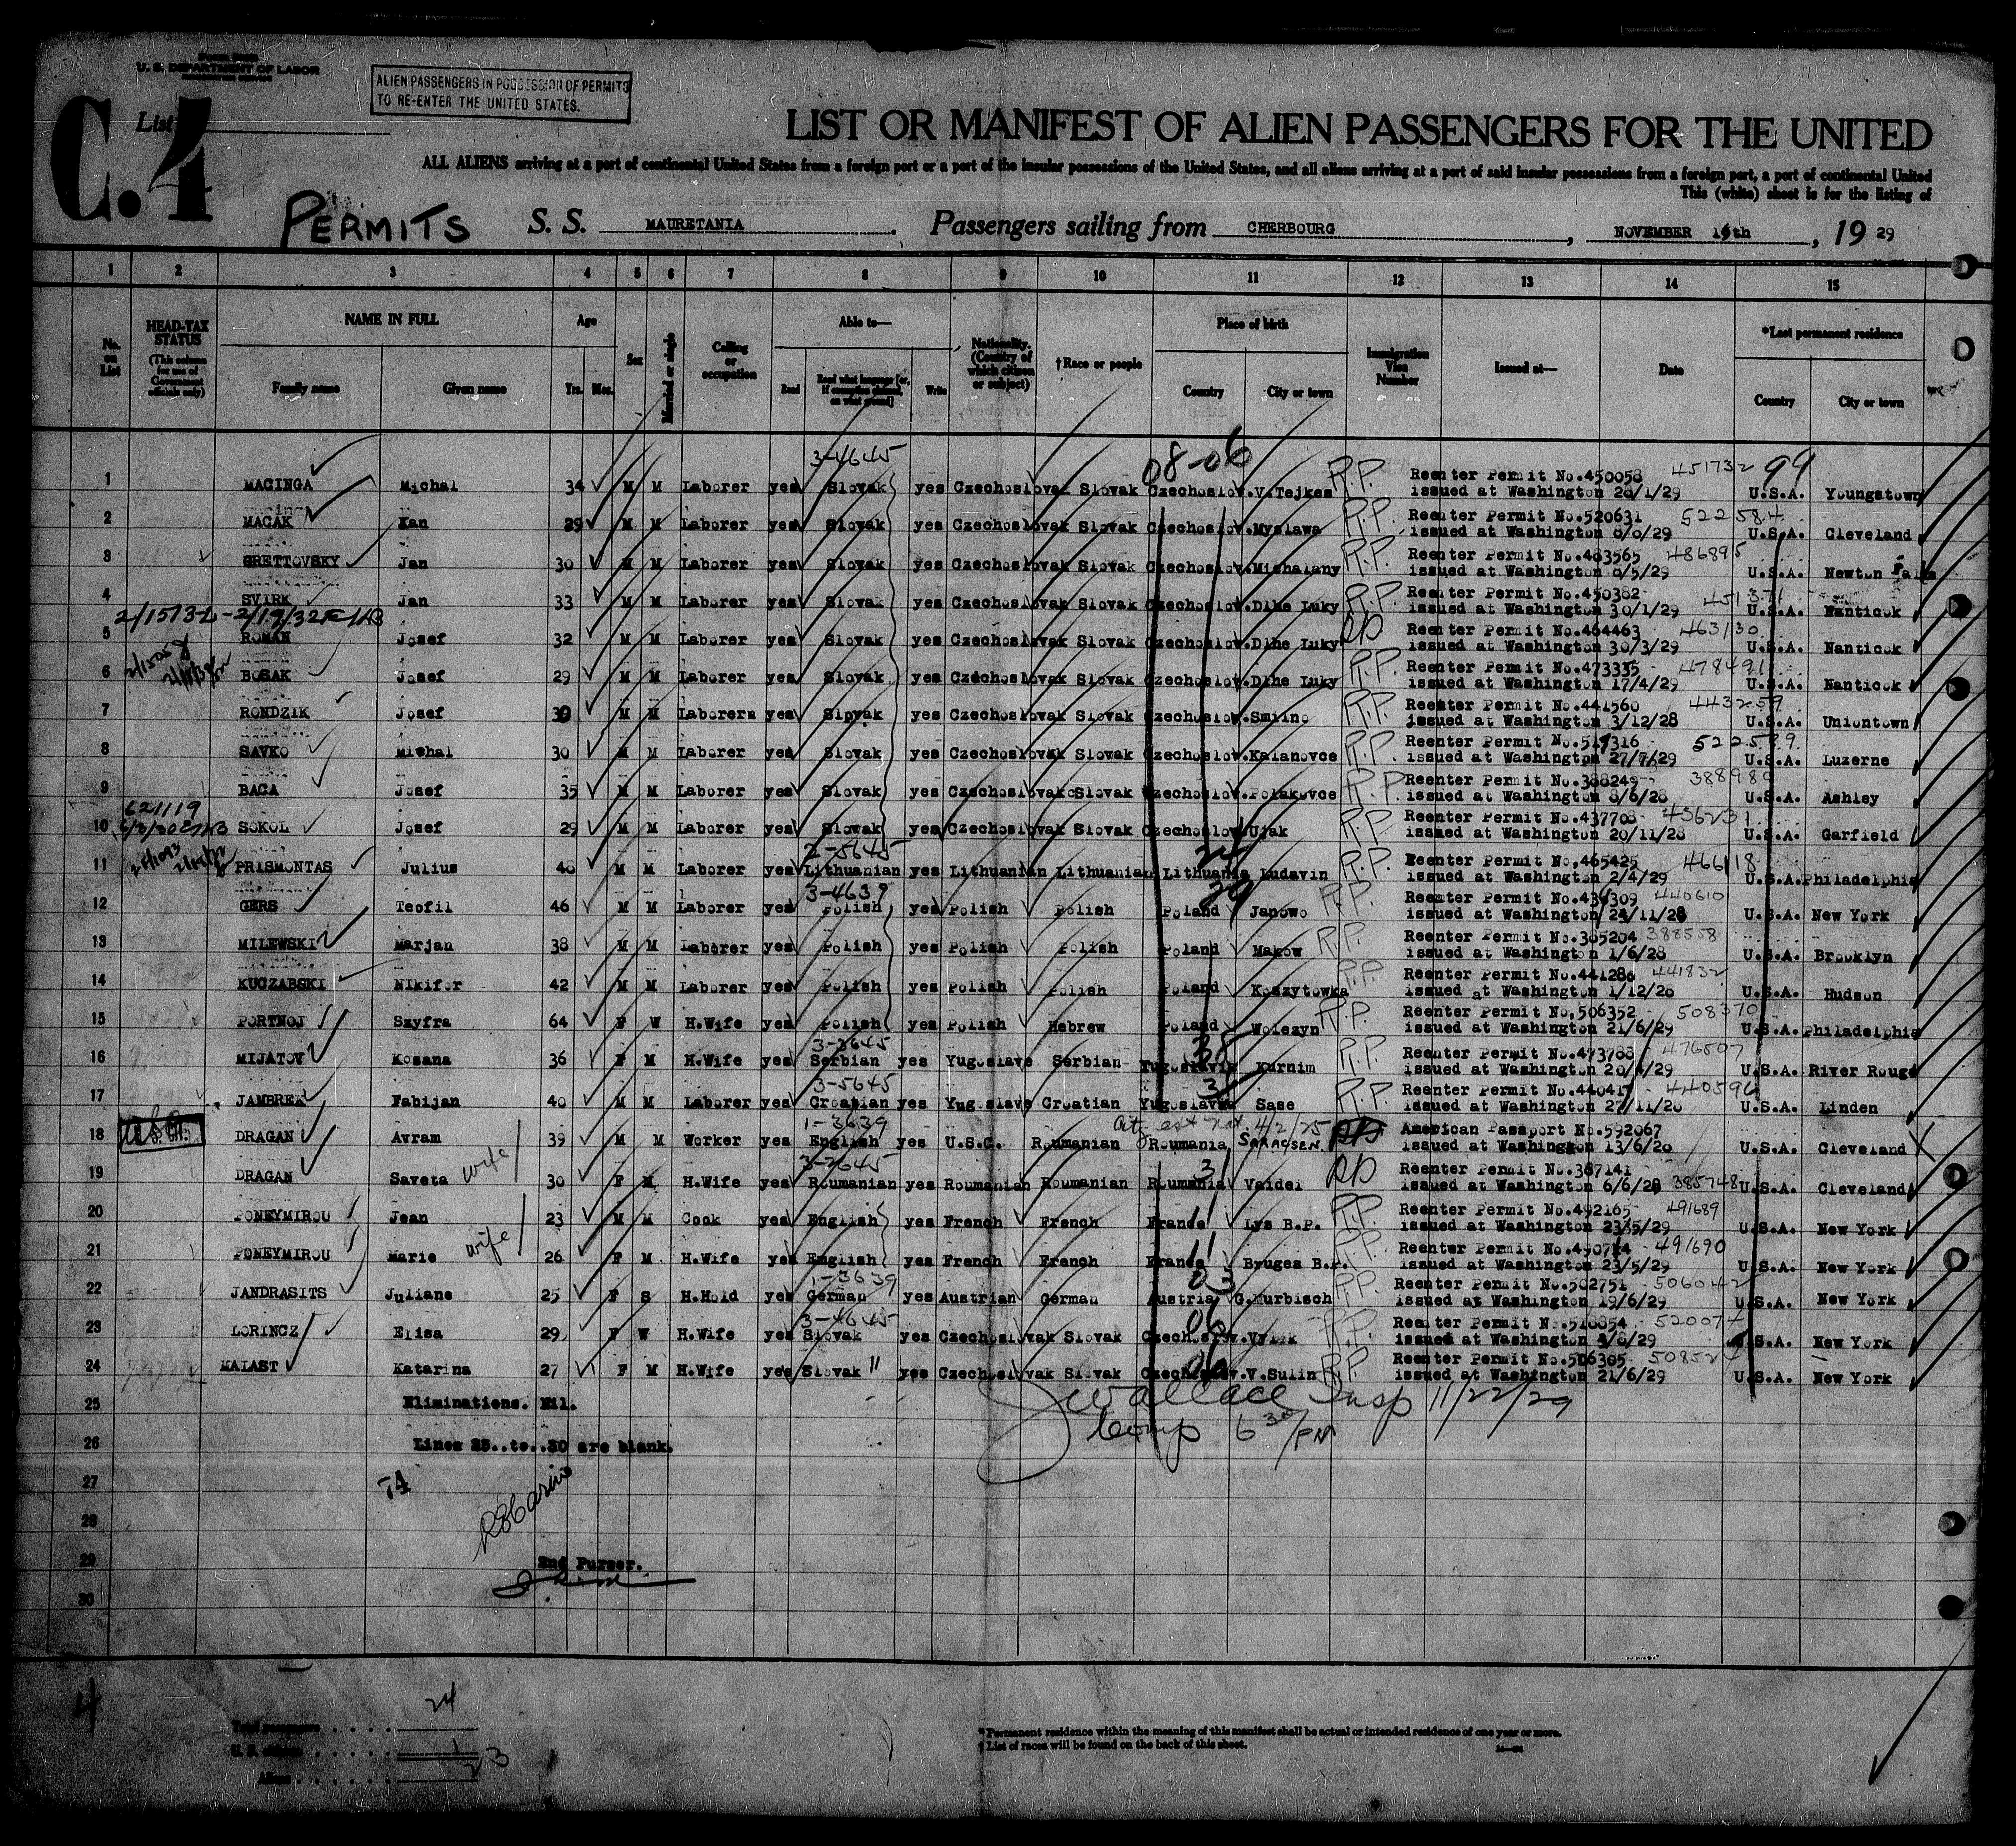 U. S. DEPARTMENT OF LABOR
ALIEN PASSENGERS IN POSSESSION OF PERMITS
TO RE-ENTER THE UNITED STATES.
C.4
List
LIST OR MANIFEST OF ALIEN PASSENGERS FOR THE UNITED
ALL ALIENS arriving at a port of continental United States from a foreign port or a port of the insular possessions of the United States, and all aliens arriving at a port of said insular possessions from a foreign port, a port of continental United
This (white) sheet is for the listing of
PERMITS S. S. MAURETANIA. Passengers sailing from CHERBOURG, NOVEMBER 16th, 19 29
1 2 3 4 5 6 7 8 9 10 11 12 13 14 15
No. on List
HEAD-TAX STATUS (This column for use of Government officials only)
NAME IN FULL
Family name Given name
Age
Yrs. Mos.
Sex
Married or single
Calling or occupation
Able to—
Read Read what language [or, if exemption claimed, on what ground] Write
Nationality. (Country of which citizen or subject)
†Race or people
Place of birth
Country City or town
Immigration Visa Number
Issued at—
Date
*Last permanent residence
Country City or town
3-4645 08-06 99
1 MACINGA Michal 34 M M Laborer yes Slovak yes Czechoslovak Slovak Czechoslov. V.Tejkes R.P. Reenter Permit No.450058 451732 issued at Washington 28/1/29 U.S.A. Youngstown
2 MACAK Kan 29 M M Laborer yes Slovak yes Czechoslovak Slovak Czechoslov. Myslawa R.P. Reenter Permit No.520631 522584 issued at Washington 8/8/29 U.S.A. Cleveland
3 GRETTOVSKY Jan 30 M M Laborer yes Slovak yes Czechoslovak Slovak Czechoslov. Michalany R.P. Reenter Permit No.483565 486895 issued at Washington 8/5/29 U.S.A. Newton Falls
4 SVIRK Jan 33 M M Laborer yes Slovak yes Czechoslovak Slovak Czechoslov. Dlhe Luky R.P. Reenter Permit No.450382 451371 issued at Washington 30/1/29 U.S.A. Nanticok
5 ROMAN Josef 32 M M Laborer yes Slovak yes Czechoslovak Slovak Czechoslov. Dlhe Luky Reenter Permit No.464463 463130 issued at Washington 30/3/29 U.S.A. Nanticok
6 BOSAK Josef 29 M M Laborer yes Slovak yes Czechoslovak Slovak Czechoslov. Dlhe Luky R.P. Reenter Permit No.473335 478491 issued at Washington 17/4/29 U.S.A. Nanticok
7 RONDZIK Josef 30 M M Laborers yes Slovak yes Czechoslovak Slovak Czechoslov. Smilno R.P. Reenter Permit No.441560 443259 issued at Washington 3/12/28 U.S.A. Uniontown
8 SAVKO Michal 30 M M Laborer yes Slovak yes Czechoslovak Slovak Czechoslov. Kalanovce R.P. Reenter Permit No.517316 issued at Washington 27/7/29 U.S.A. Luzerne
9 BACA Josef 35 M M Laborer yes Slovak yes Czechoslovak Slovak Czechoslov. Polakovce R.P. Reenter Permit No.388249 388989 issued at Washington 8/6/28 U.S.A. Ashley
621119
10 SOKOL Josef 29 M M Laborer yes Slovak yes Czechoslovak Slovak Czechoslov. Ujak R.P. Reenter Permit No.437708 436231 issued at Washington 20/11/28 U.S.A. Garfield
2-5645
11 PRISMONTAS Julius 48 M M Laborer yes Lithuanian yes Lithuanian Lithuanian Lithuania Ludavin R.P. Reenter Permit No.465425 466118 issued at Washington 2/4/29 U.S.A. Philadelphia
3-4639 29
12 GERS Teofil 46 M M Laborer yes Polish yes Polish Polish Poland Janowo R.P. Reenter Permit No.436309 440610 issued at Washington 24/11/28 U.S.A. New York
13 MILEWSKI Marjan 38 M M Laborer yes Polish yes Polish Polish Poland Makow R.P. Reenter Permit No.385204 388558 issued at Washington 1/6/28 U.S.A. Brooklyn
14 KUCZABSKI Nikifor 42 M M Laborer yes Polish yes Polish Polish Poland Koszytowka R.P. Reenter Permit No.441286 441832 issued at Washington 1/12/28 U.S.A. Hudson
15 PORTNOJ Szyfra 64 F W H.Wife yes Polish yes Polish Hebrew Poland Wolozyn R.P. Reenter Permit No.506352 508370 issued at Washington 21/6/29 U.S.A. Philadelphia
3-3645
16 MIJATOV Kosana 36 F M H.Wife yes Serbian yes Yugoslave Serbian Yugoslavia Kurnim R.P. Reenter Permit No.473788 476507 issued at Washington 20/4/29 U.S.A. River Rouge
3-5645
17 JAMBREK Fabijan 40 M M Laborer yes Croatian yes Yugoslave Croatian Yugoslavia Sase R.P. Reenter Permit No.440417 440596 issued at Washington 27/11/28 U.S.A. Linden
1-3639 4/2/25
18 DRAGAN Avram 39 M M Worker yes English yes U.S.C. Roumanian Roumania American Passport No.592067 issued at Washington 13/6/28 U.S.A. Cleveland
3-2645 31
19 DRAGAN Saveta wife 30 F M H.Wife yes Roumanian yes Roumanian Roumanian Roumania Vaidei Reenter Permit No.387141 issued at Washington 6/6/28 385748 U.S.A. Cleveland
20 PONEYMIROU Jean 23 M M Cook yes English yes French French France Lys B.P. R.P. Reenter Permit No.492165 491689 issued at Washington 23/5/29 U.S.A. New York
21 PONEYMIROU Marie wife 26 F M H.Wife yes English yes French French France Bruges B.P. R.P. Reenter Permit No.490774 491690 issued at Washington 23/5/29 U.S.A. New York
1-3639 03
22 JANDRASITS Juliane 25 F S H.Hold yes German yes Austrian German Austria G.Murbisch R.P. Reenter Permit No.502751 506042 issued at Washington 19/6/29 U.S.A. New York
3-4645 06
23 LORINCZ Elisa 29 F W H.Wife yes Slovak yes Czechoslovak Slovak Czechoslov. R.P. Reenter Permit No.518854 52007 issued at Washington 4/8/29 U.S.A. New York
24 MALAST Katarina 27 F M H.Wife yes Slovak " yes Czechoslovak Slovak Czechoslov. V.Sulin R.P. Reenter Permit No.506305 50852 issued at Washington 21/6/29 U.S.A. New York
25 Eliminations. Nil. J Wallace Insp 11/22/29
26 Lines 25..to..30 are blank. Comp 6 30/PM
27 74
28
29 2nd Purser.
30
4
Total passengers . . . . . 24
U. S. citizens . . . . . 1
Aliens . . . . . . 23
*Permanent residence within the meaning of this manifest shall be actual or intended residence of one year or more.
†List of races will be found on the back of this sheet.